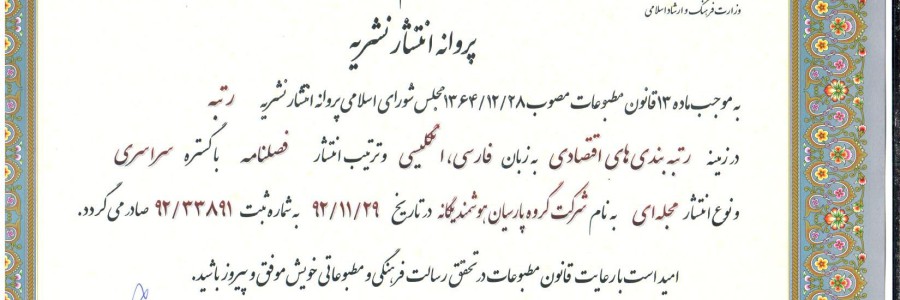 وزارت فرهنگ و ارشاد اسلامی
پروانه انتشار نشریه
به موجب ماده ۱۳ قانون مطبوعات مصوب ۱۳۶۴/۱۲/۲۸ مجلس شورای اسلامی پروانه انتشار نشریه رتبه
در زمینه رتبه بندی های اقتصادی به زبان فارسی، انگلیسی و ترتیب انتشار فصلنامه با گستره سراسری
و نوع انتشار مجله ای به نام شرکت گروه پارسیان هوشمند یگانه در تاریخ ۹۲/۱۱/۲۹ به شماره ثبت ۹۲/۳۳۸۹۱ صادر می گردد.
امید است با رعایت قانون مطبوعات در تحقق رسالت فرهنگی و مطبوعاتی خویش موفق و پیروز باشید.